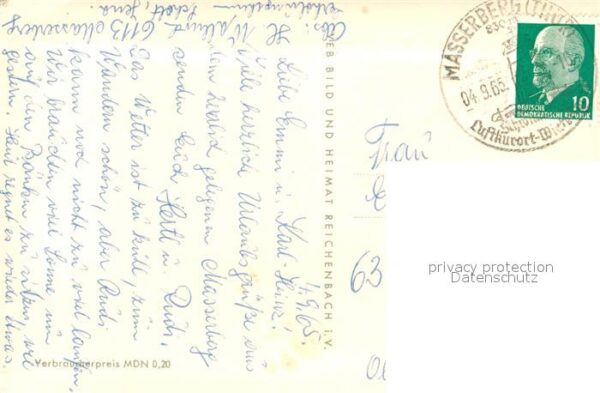 Abs: H. Walluck
6113 Masserberg
4.9.65.
Liebe Emmi u. Karl-Heinz!
Viele herzliche Urlaubsgrüße aus
dem herrlich gelegenen Masserberg
senden Euch Hertl u. Rudi.
Das Wetter ist zu kühl, zum
Wandern schön, aber Rudi
kann noch nicht zu viel laufen.
Wir brauchten viel Sonne um
auf den Bänken zu sitzen, wie
gestern. Heut regnet es wieder etwas.
Verbraucherpreis MDN 0,20
VEB BILD UND HEIMAT REICHENBACH i. V.
MASSERBERG (THÜR
04.9.65
Luftkurort-Winter
10
DEUTSCHE
DEMOKRATISCHE REPUBLIK
Frau
63
privacy protection
Datenschutz